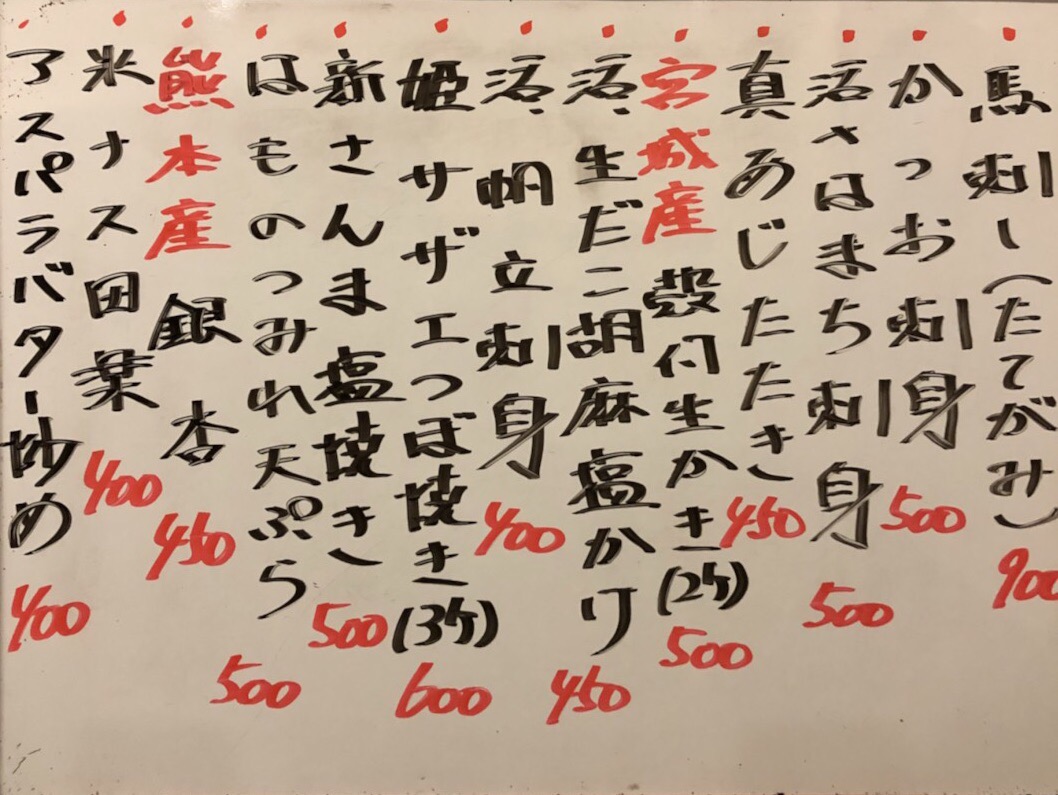 馬刺し(たてがみ) 900
かつお刺身 500
活きはまち刺身 500
真あじたたき 450
宮城産 殻付生かき(2ケ) 500
活生だこ胡麻塩かけ 450
活帆立刺身 400
姫サザエつぼ焼き(3ケ) 600
新さんま塩焼き 500
はものつみれ天ぷら 500
熊本産 銀杏 450
米ナス田楽 400
アスパラバター炒め 400